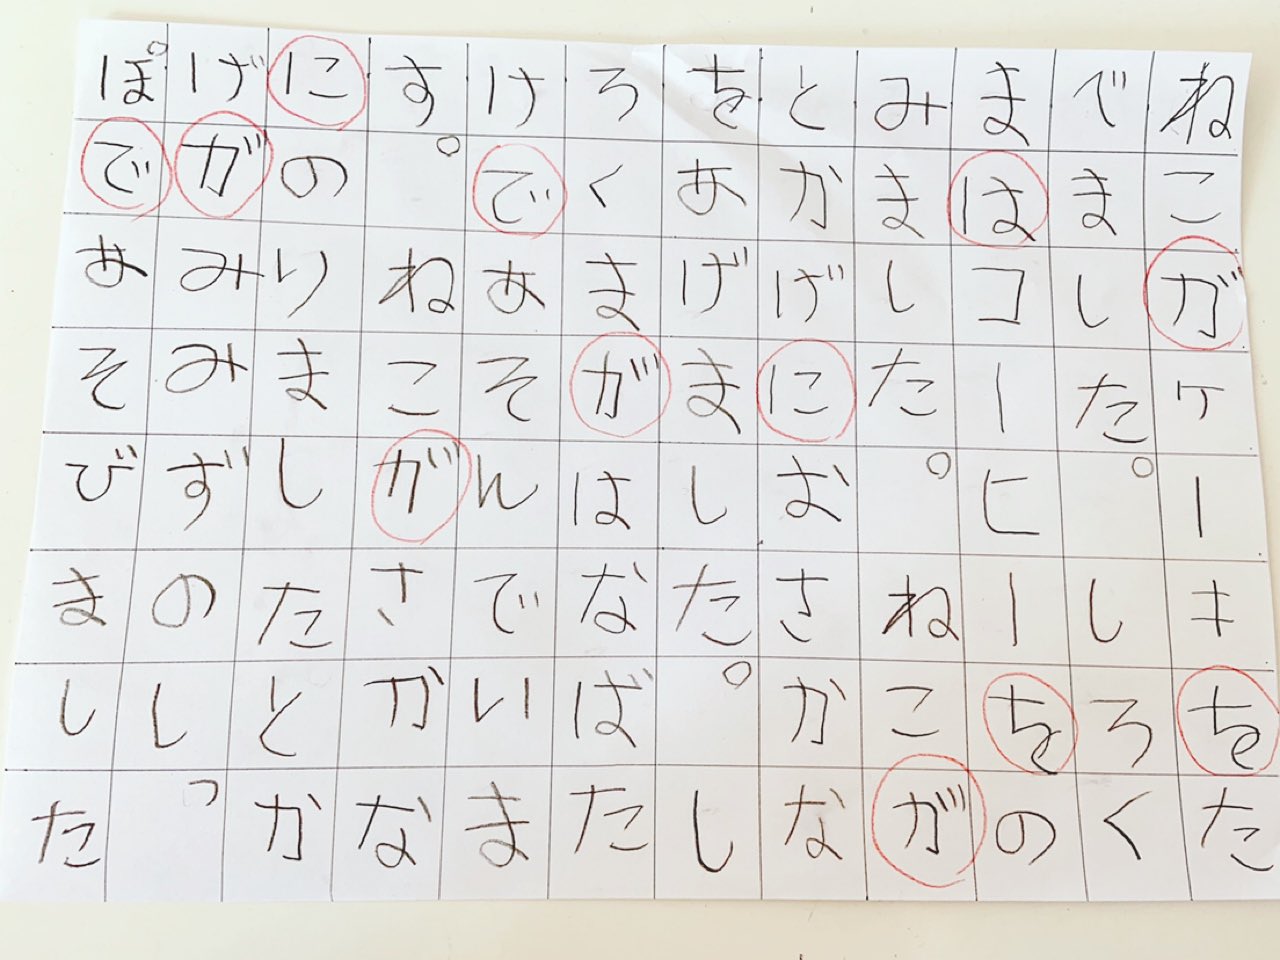 ねこがケーキをた
でました。しろく
まはコーヒーをの
みました。ねこが
とかげにおさかな
をあげました。し
ろくまがはなばた
けであそんでいま
す。ねこがさかな
にのりましたとか
げがみみずのしっ
ぽであそびました